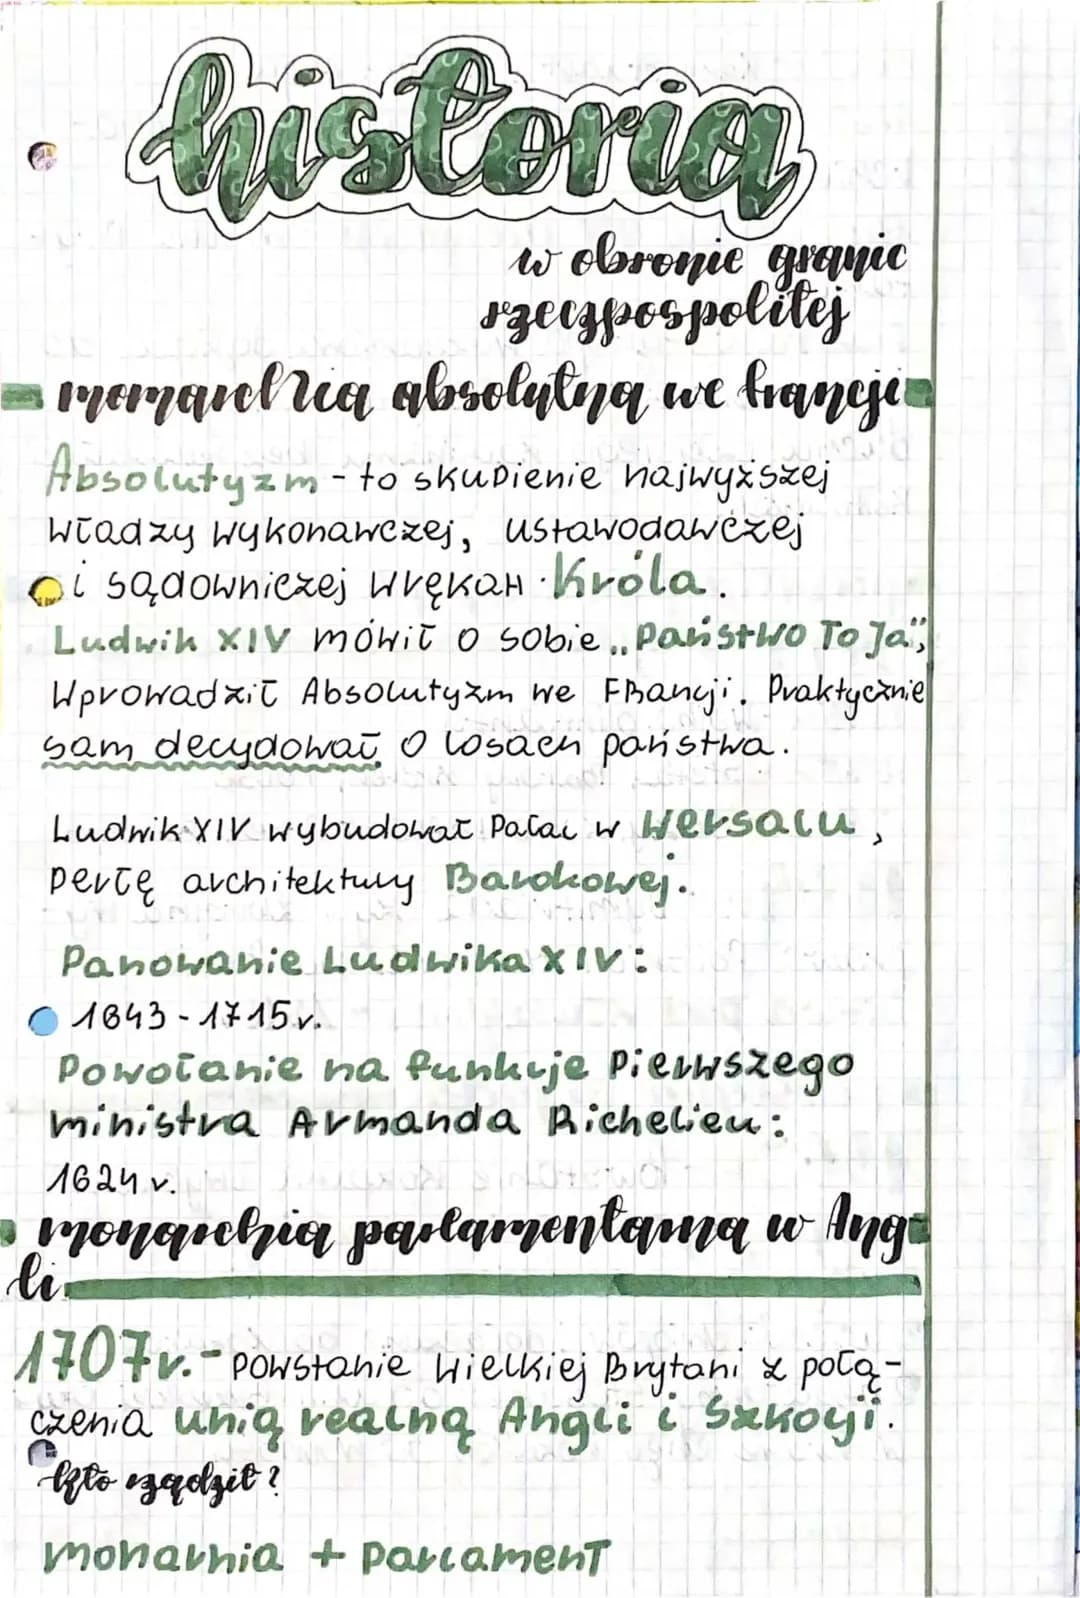 historia
w obronie granic
rzeczpospolitej
monarchia absolutna we francji
Absolutyzm - to skupienie najwyższej
władzy wykonawczej, ustawodawczej
i sądowniczej w rękah Króla.
Ludwik XIV mówił o sobie „Państwo To Ja",
Wprowadził Absolutyzm we Francji. Praktycznie
sam decydował o losach państwa.
Ludwik XIV wybudował Pałac w Wersalu,
perłę architektury Barokowej.
Panowanie Ludwika XIV:
1643 - 1715 r.
Powołanie na funkcje Pierwszego
ministra Armanda Richelieu:
1624 r.
monarchia parlamentarna w Ang-
li
1707r. - powstanie Wielkiej Brytani z połą-
czenia unią realną Angli i Szkocji.
kto rządził?
monarhia + parlament